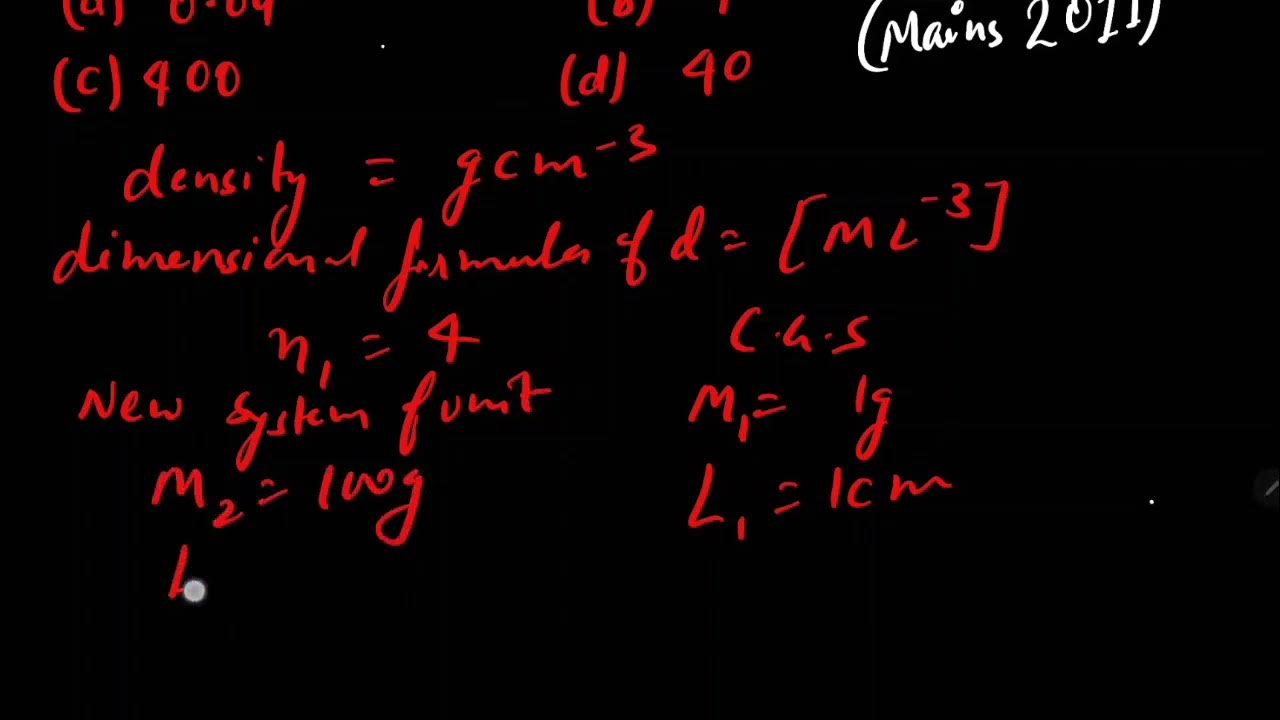 (a) 0.04 (b)
(Mains 2011)
(c) 400 (d) 40
density = gcm⁻³
dimensional formula of d = [ML⁻³]
n₁ = 4 C.G.S
New system of unit M₁ = 1g
M₂ = 100g L₁ = 1cm
L